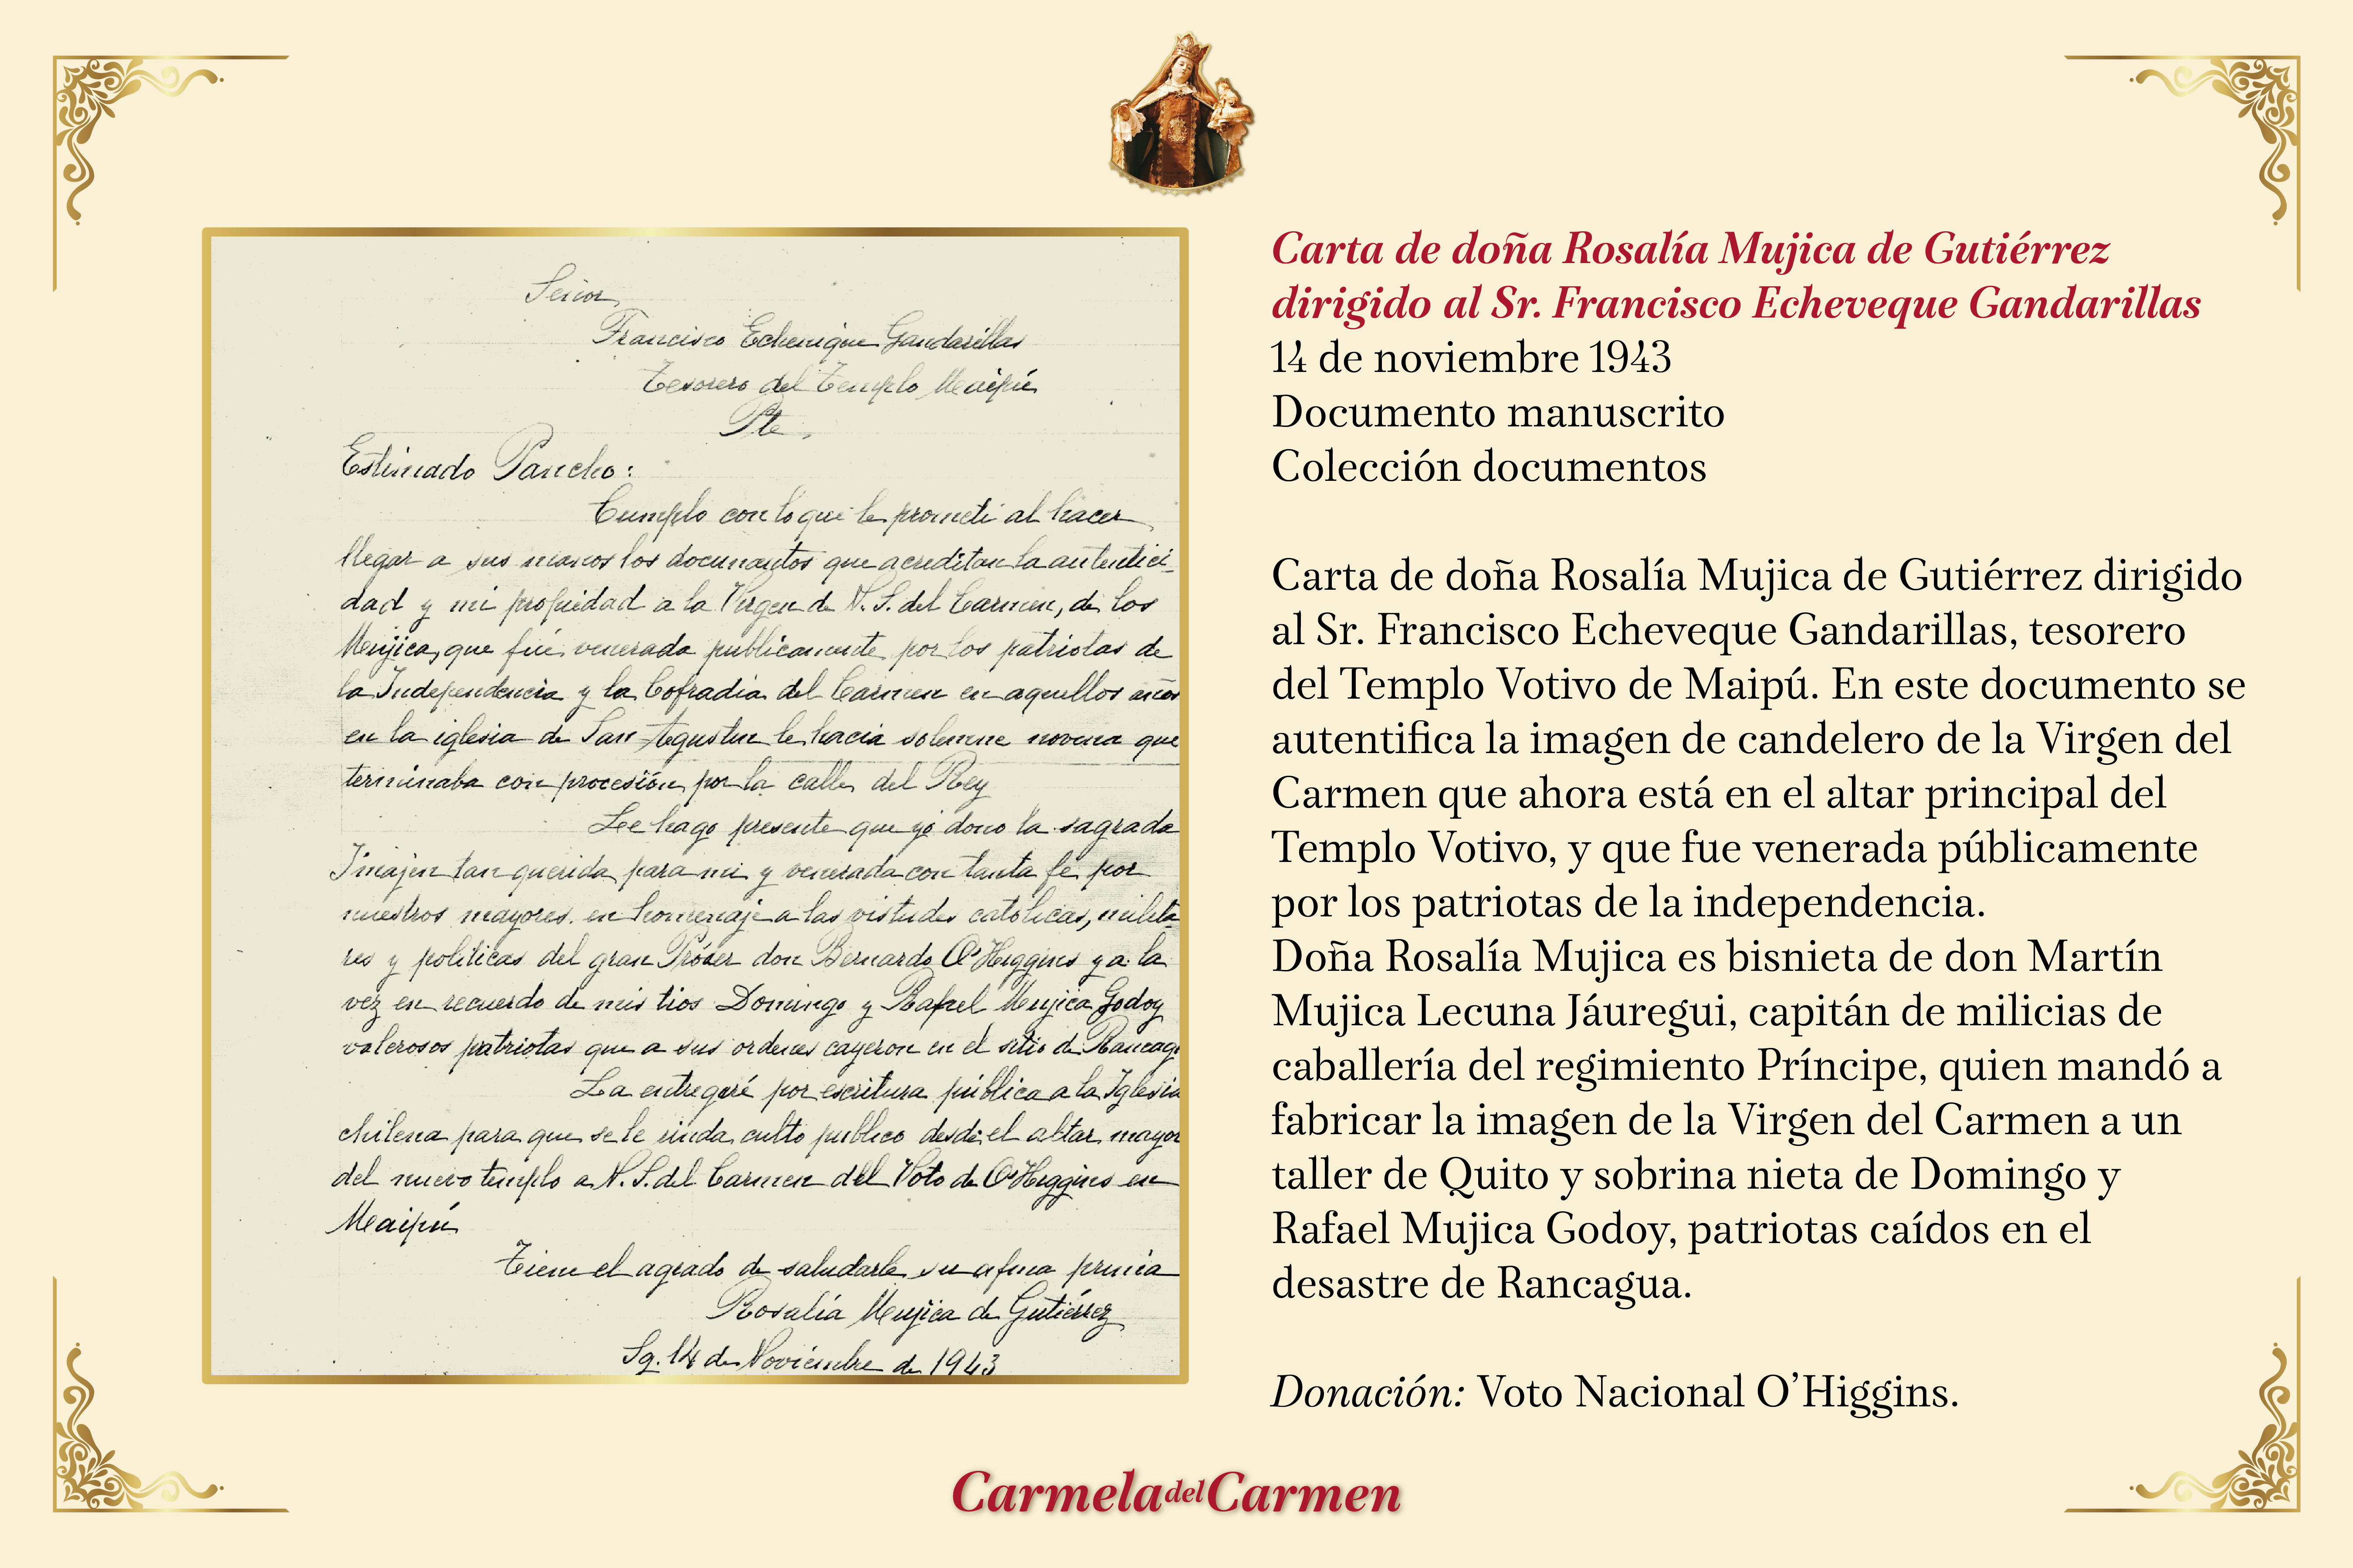 Señor
Francisco Echenique Gandarillas
Tesorero del Templo Maipú
Pte.
Estimado Pancho:
Cumplo con lo que le prometí al hacer
llegar a sus manos los documentos que acreditan la autentici-
dad y mi propiedad a la Virgen de N. S. del Carmen, de los
Mujica, que fué venerada publicamente por los patriotas de
la Independencia y la Cofradia del Carmen en aquellos años
en la iglesia de San Agustin le hacia solemne novena que
terminaba con procesión por la calle del Rey
Le hago presente que yo dono la sagrada
Imajen tan querida para mi y venerada con tanta fe por
nuestros mayores en homenaje a las virtudes catolicas, milita-
res y politicas del gran Prócer don Bernardo O'Higgins y a la
vez en recuerdo de mis tios Domingo y Rafael Mujica Godoy
valerosos patriotas que a sus ordenes cayeron en el sitio de Rancag
La entregaré por escritura pública a la Iglesia
chilena para que se le rinda culto publico desde el altar mayor
del nuevo templo a N. S. del Carmen del Voto de O'Higgins en
Maipú
Tiene el agrado de saludarle su afma prima
Rosalía Mujica de Gutiérrez
Sg. 14 de Noviembre de 1943
Carta de doña Rosalía Mujica de Gutiérrez
dirigido al Sr. Francisco Echeveque Gandarillas
14 de noviembre 1943
Documento manuscrito
Colección documentos
Carta de doña Rosalía Mujica de Gutiérrez dirigido
al Sr. Francisco Echeveque Gandarillas, tesorero
del Templo Votivo de Maipú. En este documento se
autentifica la imagen de candelero de la Virgen del
Carmen que ahora está en el altar principal del
Templo Votivo, y que fue venerada públicamente
por los patriotas de la independencia.
Doña Rosalía Mujica es bisnieta de don Martín
Mujica Lecuna Jáuregui, capitán de milicias de
caballería del regimiento Príncipe, quien mandó a
fabricar la imagen de la Virgen del Carmen a un
taller de Quito y sobrina nieta de Domingo y
Rafael Mujica Godoy, patriotas caídos en el
desastre de Rancagua.
Donación: Voto Nacional O’Higgins.
Carmela del Carmen